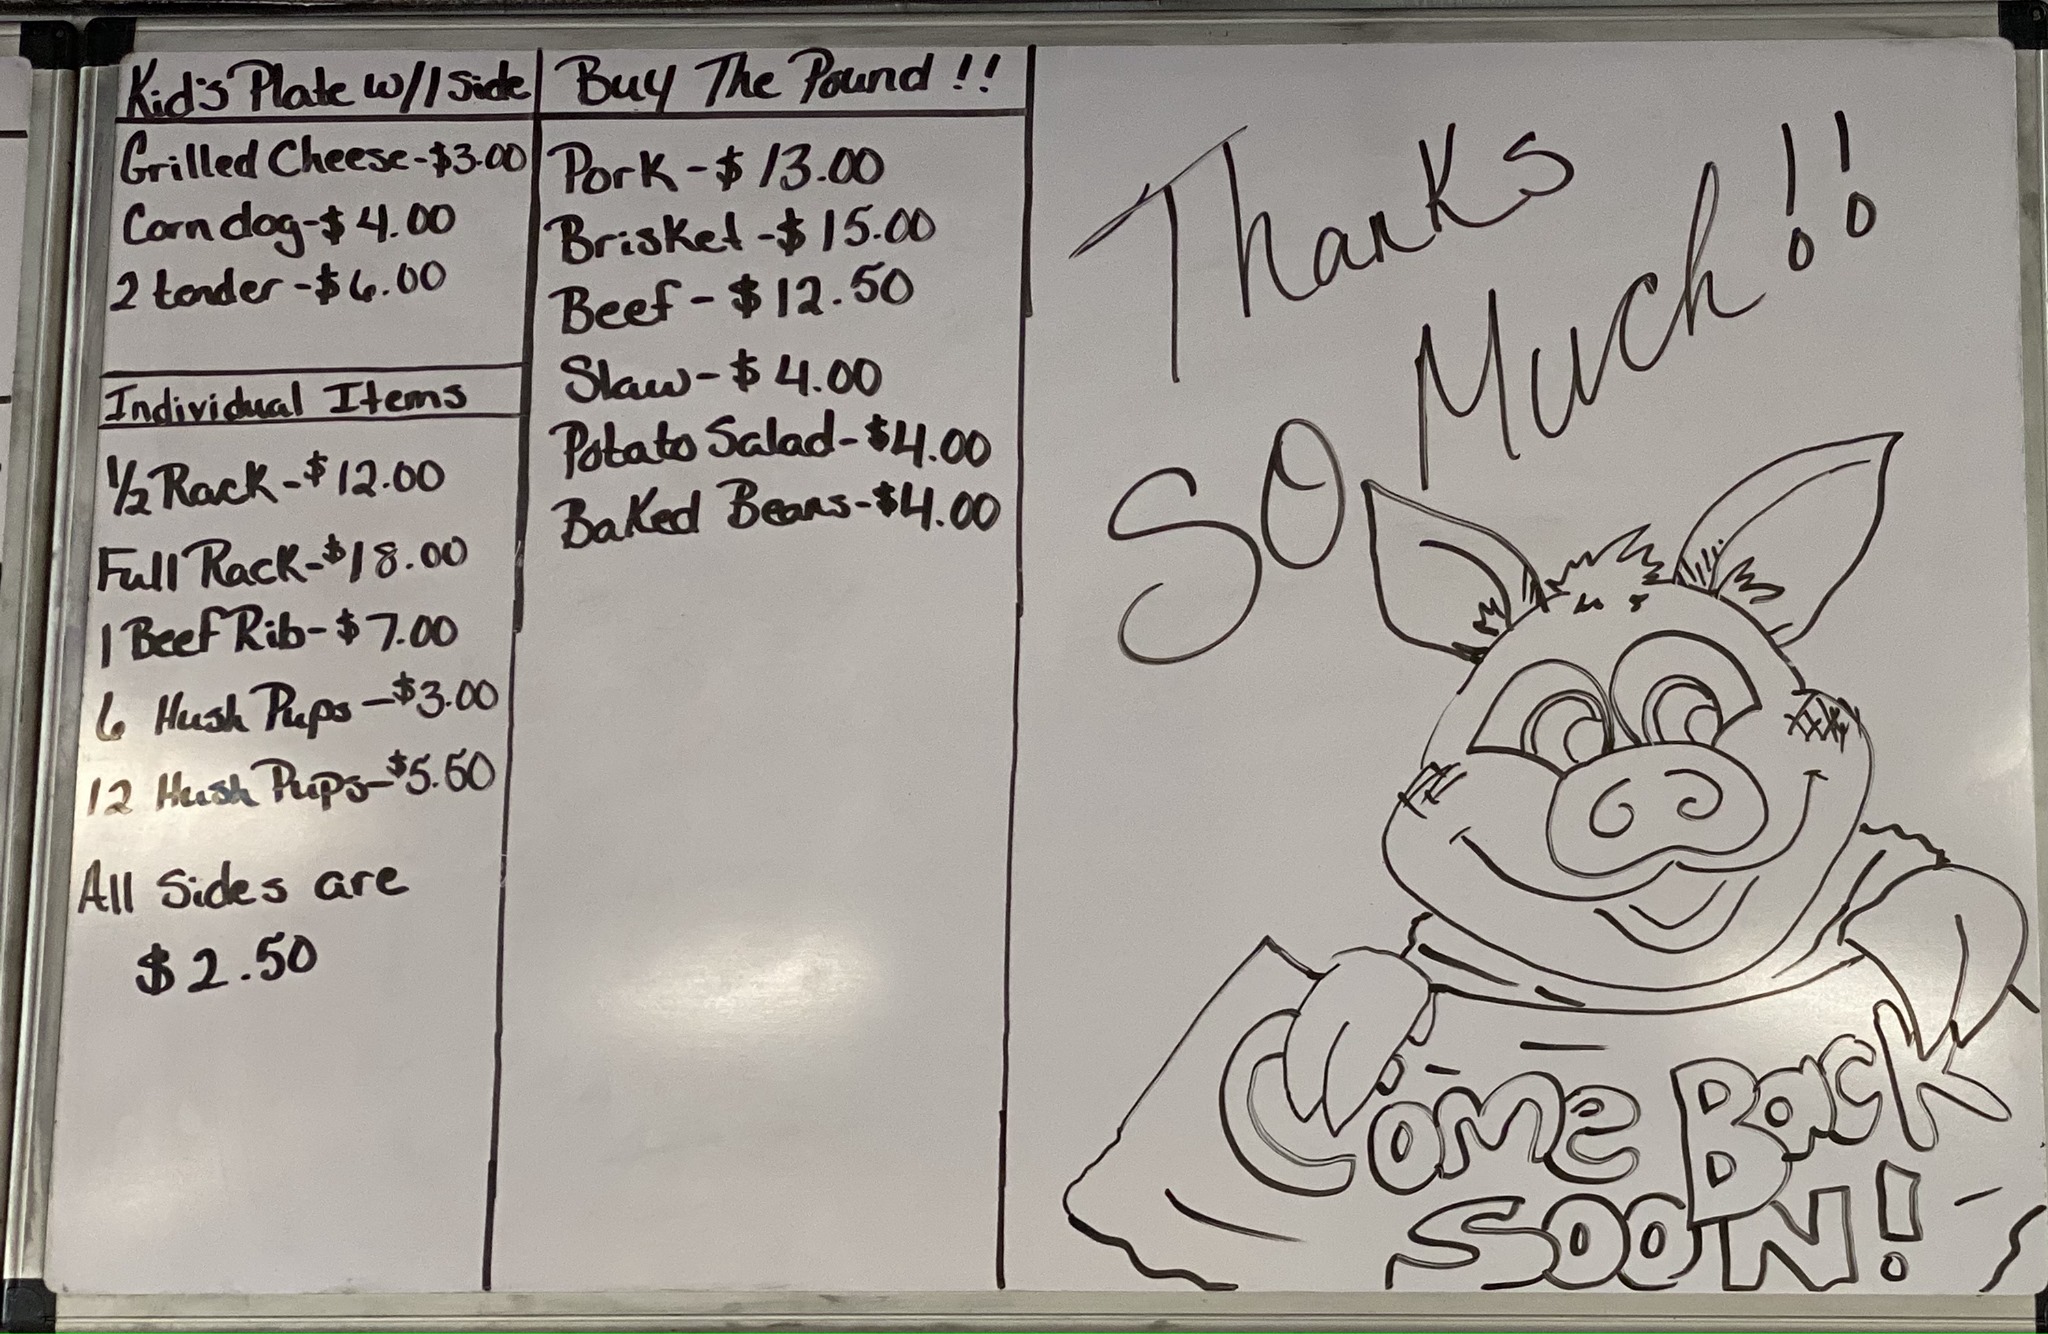 Kid's Plate w/1 side
Grilled Cheese-$3.00
Corn dog-$4.00
2 tender-$6.00
Individual Items
1/2 Rack-$12.00
Full Rack-$18.00
1 Beef Rib-$7.00
6 Hush Pups-$3.00
12 Hush Pups-$5.50
All Sides are
$2.50
Buy The Pound!!
Pork-$13.00
Brisket-$15.00
Beef-$12.50
Slaw-$4.00
Potato Salad-$4.00
Baked Beans-$4.00
Thanks
SO Much!!
Come Back
SOON!